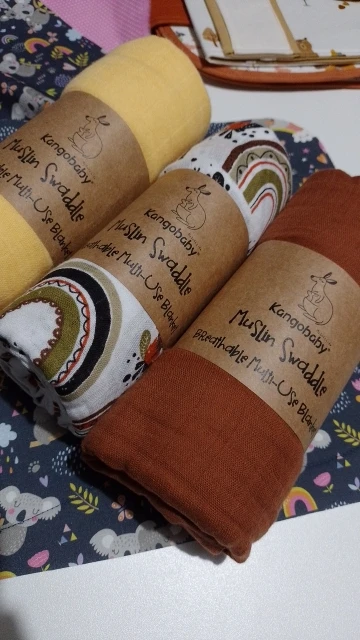 Kangobaby
Muslin Swaddle
Multi-Use Blanket
Kangobaby
Muslin Swaddle
Multi-Use Blanket
Kangobaby
Muslin Swaddle
Breathable Multi-Use Blanket